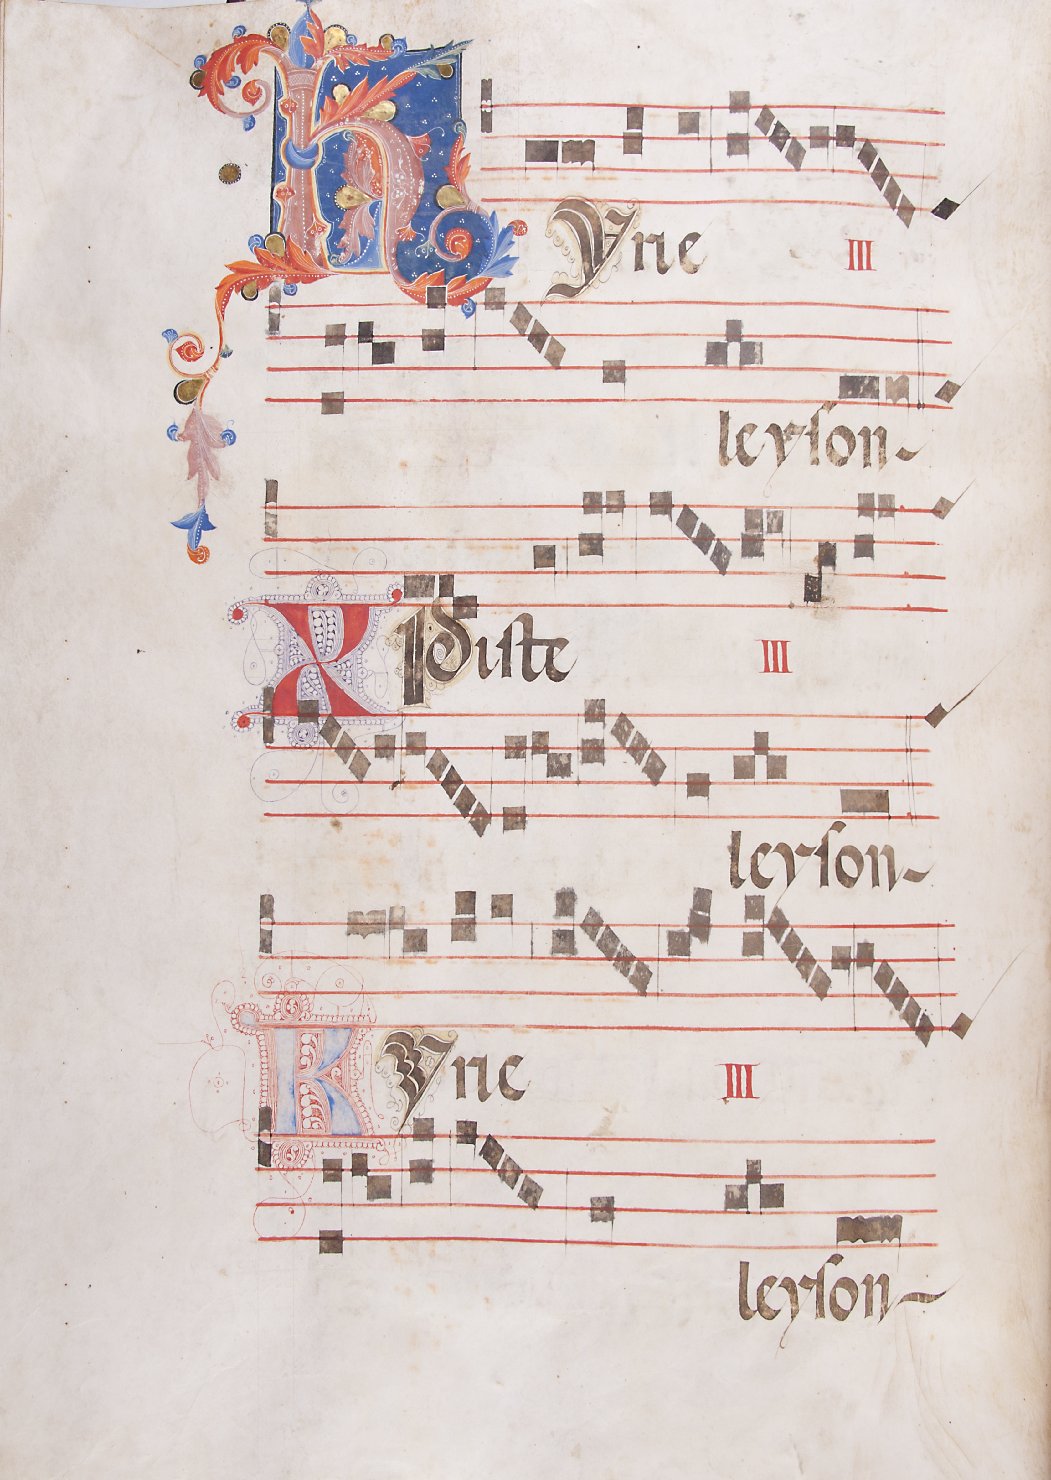 KYrie III
leyson
Xpiste III
leyson
KYrie III
leyson